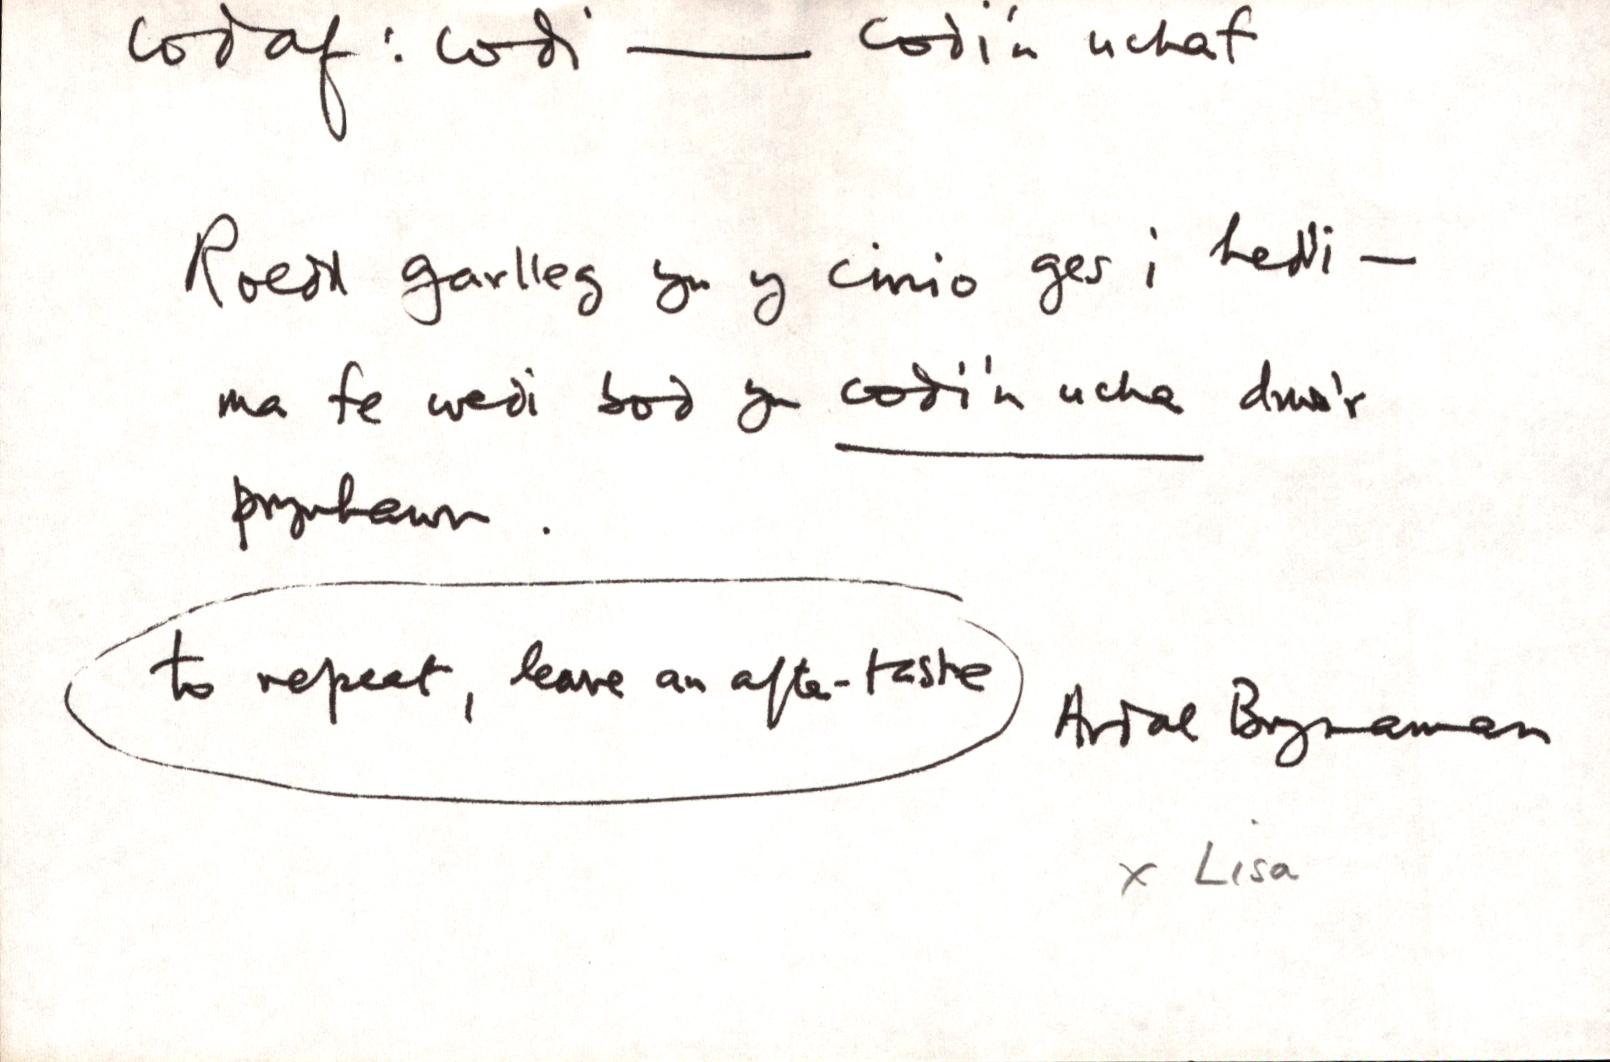 codaf : codi — codi'n uchaf
Roedd garlleg yn y cinio ges i heddi —
ma fe wedi bod yn codi'n ucha drwa'r
prynhawn .
to repeat, leave an after-taste
Ardal Brynaman
x Lisa